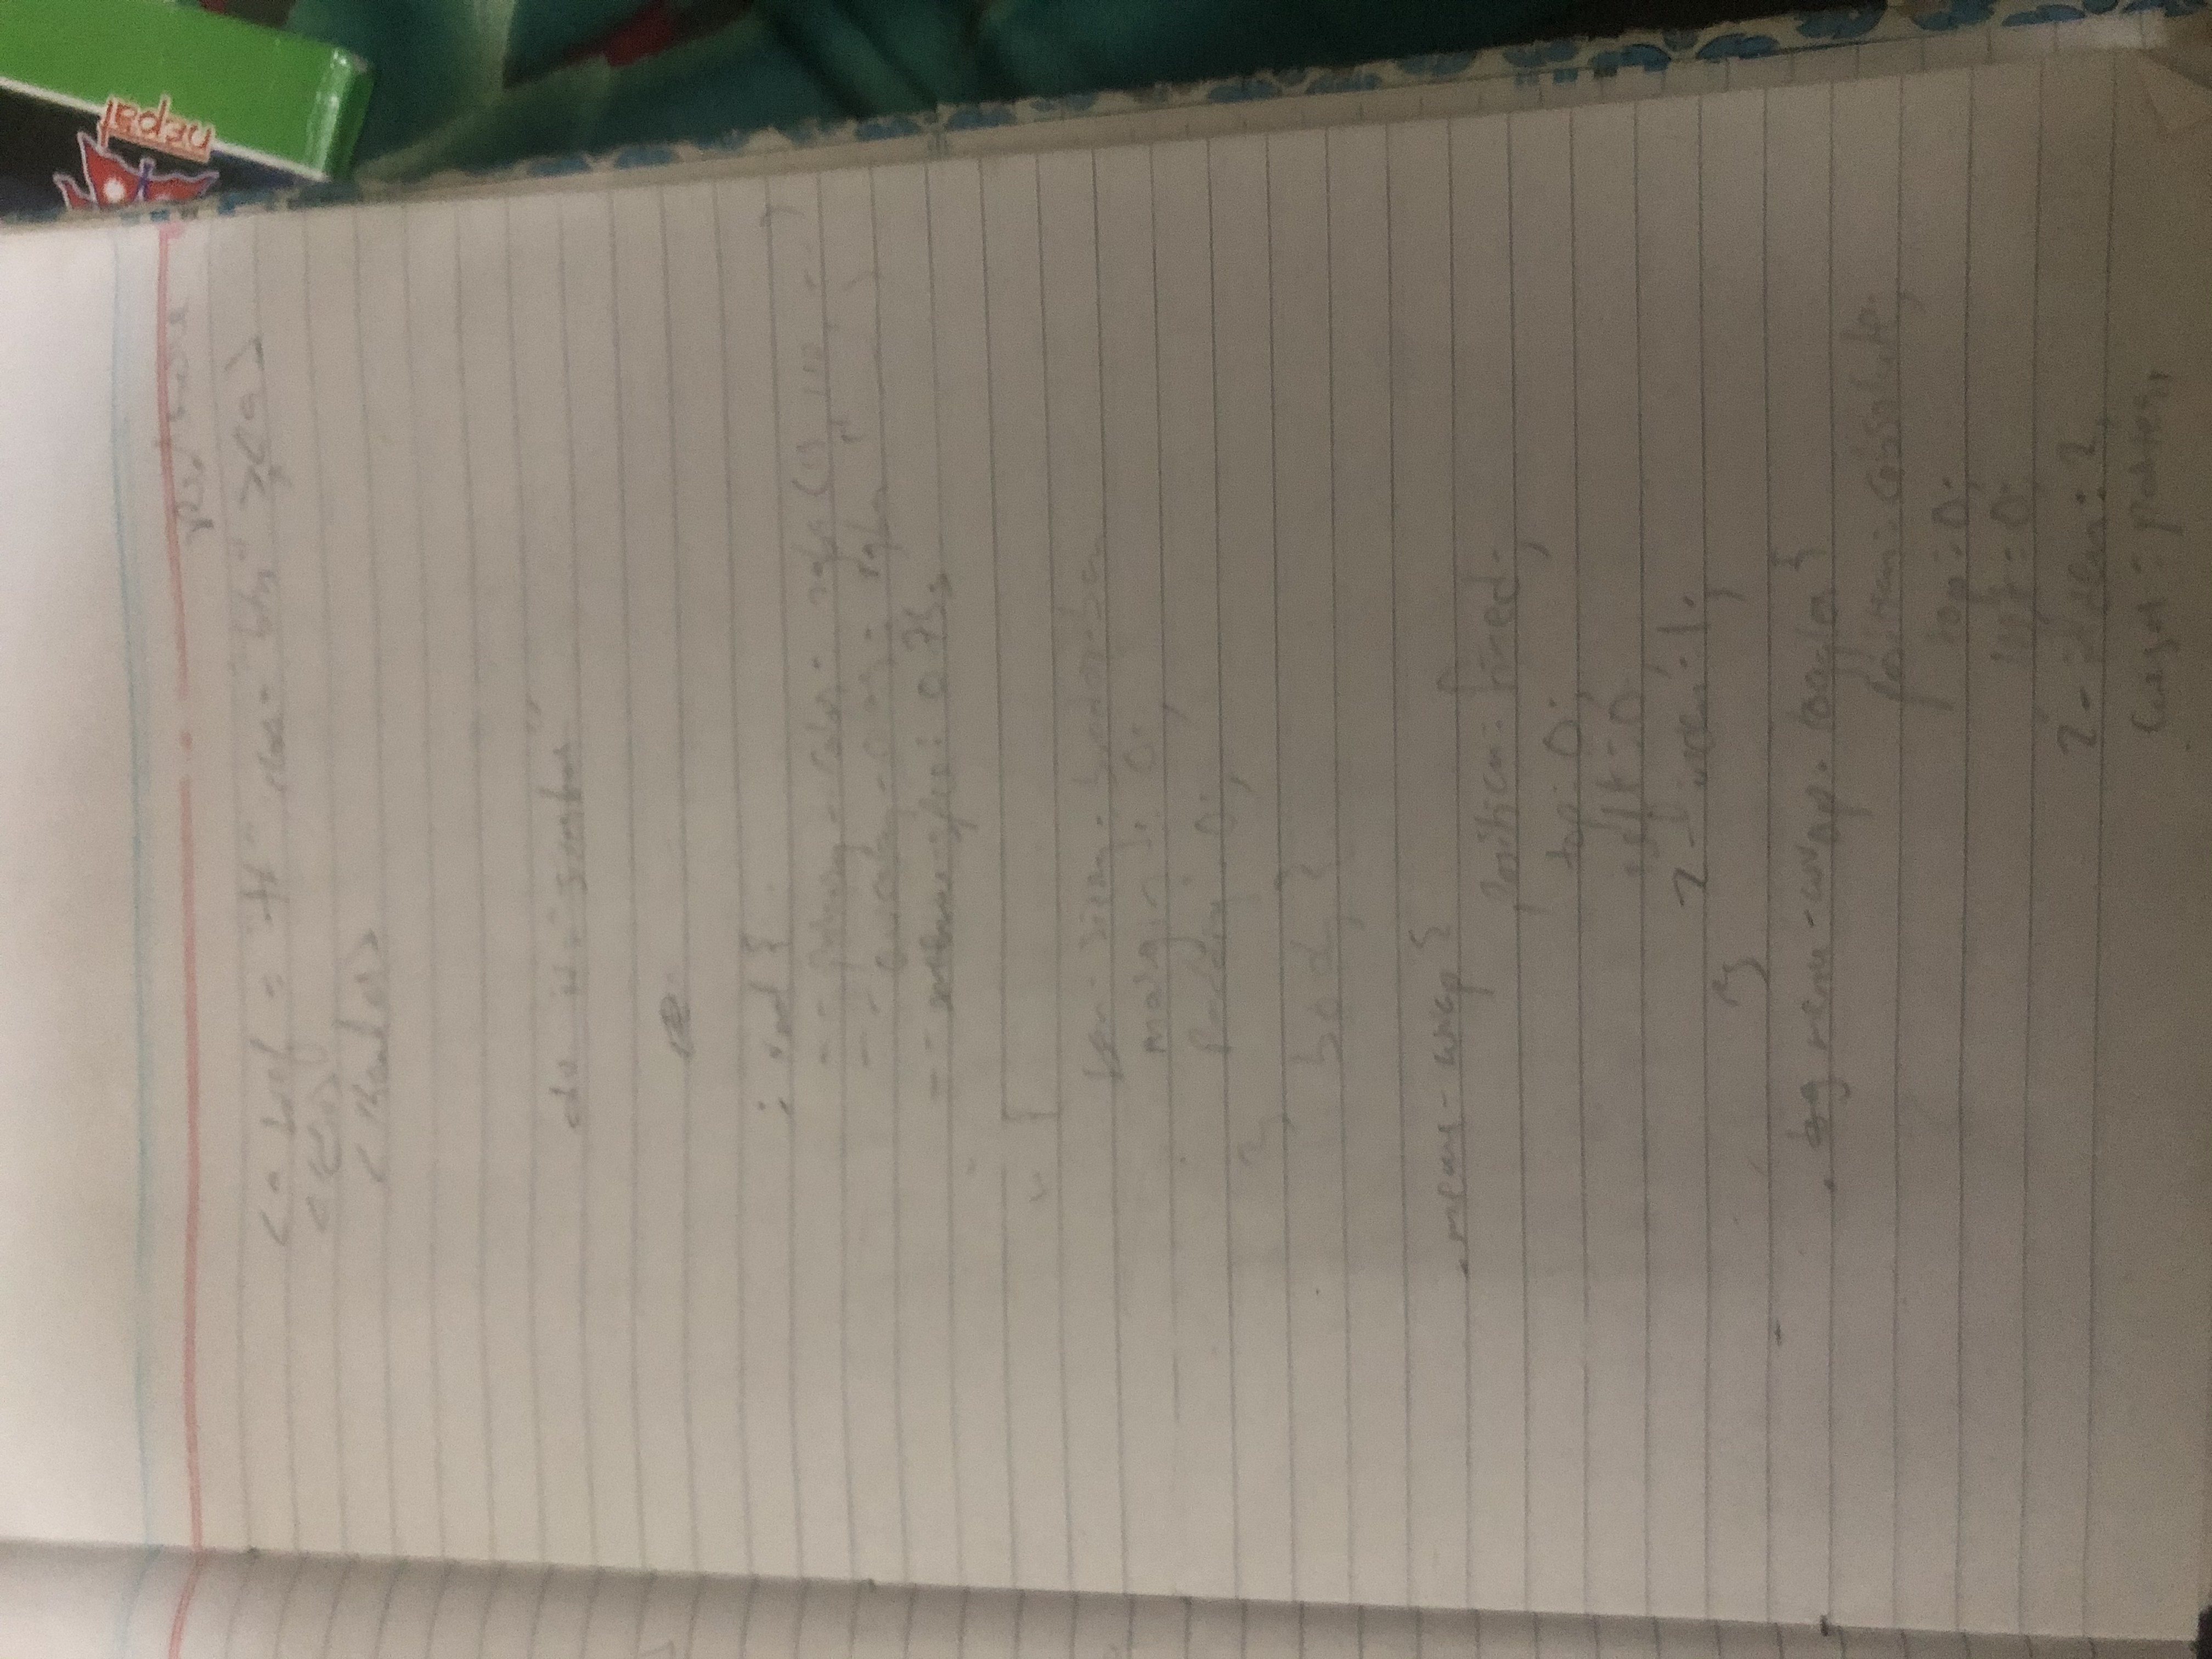 <a href = "#" class= "btn" ><a>
</div>
</header>
div id = "
: root {
-- primary - color = rgba (13, 110,
-- overlay - rgba
-- speed: 0.75s
box-sizing: border-box
margin: 0;
Padding: 0;
}
body {
.menu-wrap {
position: fixed;
top: 0;
left: 0;
z-index: 1;
}
. menu-wrap. toggler {
position: absolute;
top: 0;
left: 0;
z-index: 2;
Cursor: pointer;
nepal